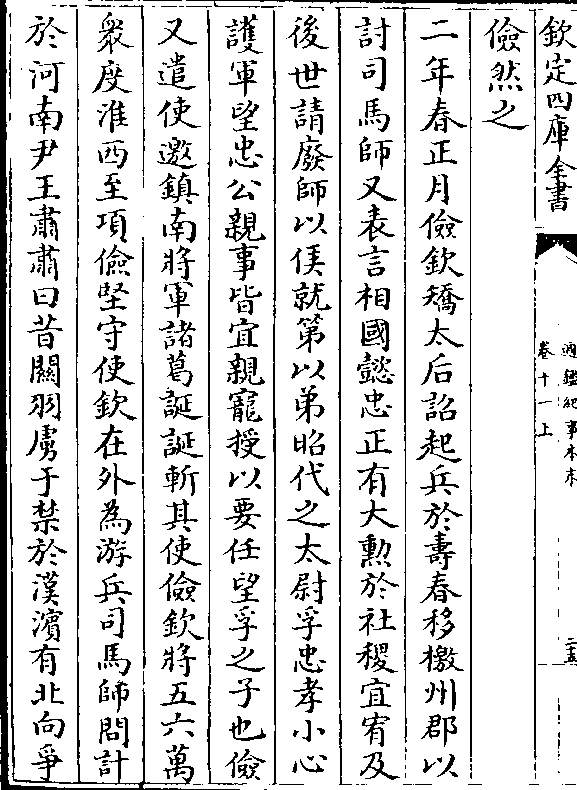 欽定四庫全書
通鑑紀事本末
卷十一上
二五
儉然之
二年春正月儉欽矯太后詔起兵於壽春移檄州郡以
討司馬師又表言相國懿忠正有大勲於社稷宜宥及
後世請廢師以侯就第以弟昭代之太尉孚忠孝小心
護軍望忠公親事皆宜親寵授以要任望孚之子也儉
又遣使邀鎮南將軍諸葛誕誕斬其使儉欽將五六萬
衆度淮西至項儉堅守使欽在外為游兵司馬師問計
於河南尹王肅肅曰昔關羽虜于禁於漢濵有北向爭